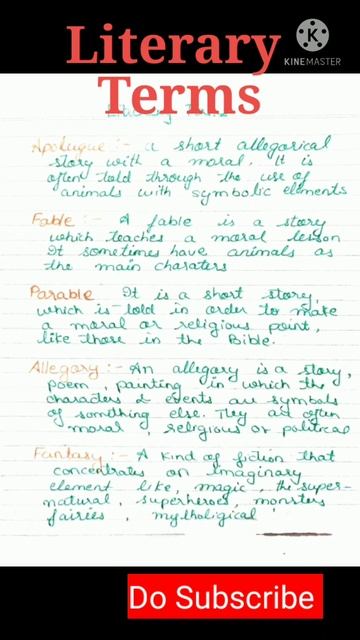 Literary
KINEMASTER
Terms
Apologue :- a short allegorical
story with a moral. It is
often told through the use of
animals with symbolic elements
Fable :- A fable is a story
which teaches a moral lesson
It sometimes have animals as
the main charaters
Parable It is a short story,
which is told in order to make
a moral or religious point,
like those in the Bible.
Allegory :- An allegory is a story,
poem, painting in which the
characters & events are symbols
of something else. They are often
moral, religious or political
Fantasy :- A kind of fiction that
concentrates on imaginary
element like, magic, the super-
natural, superheroes, monsters
fairies, mythological
Do Subscribe